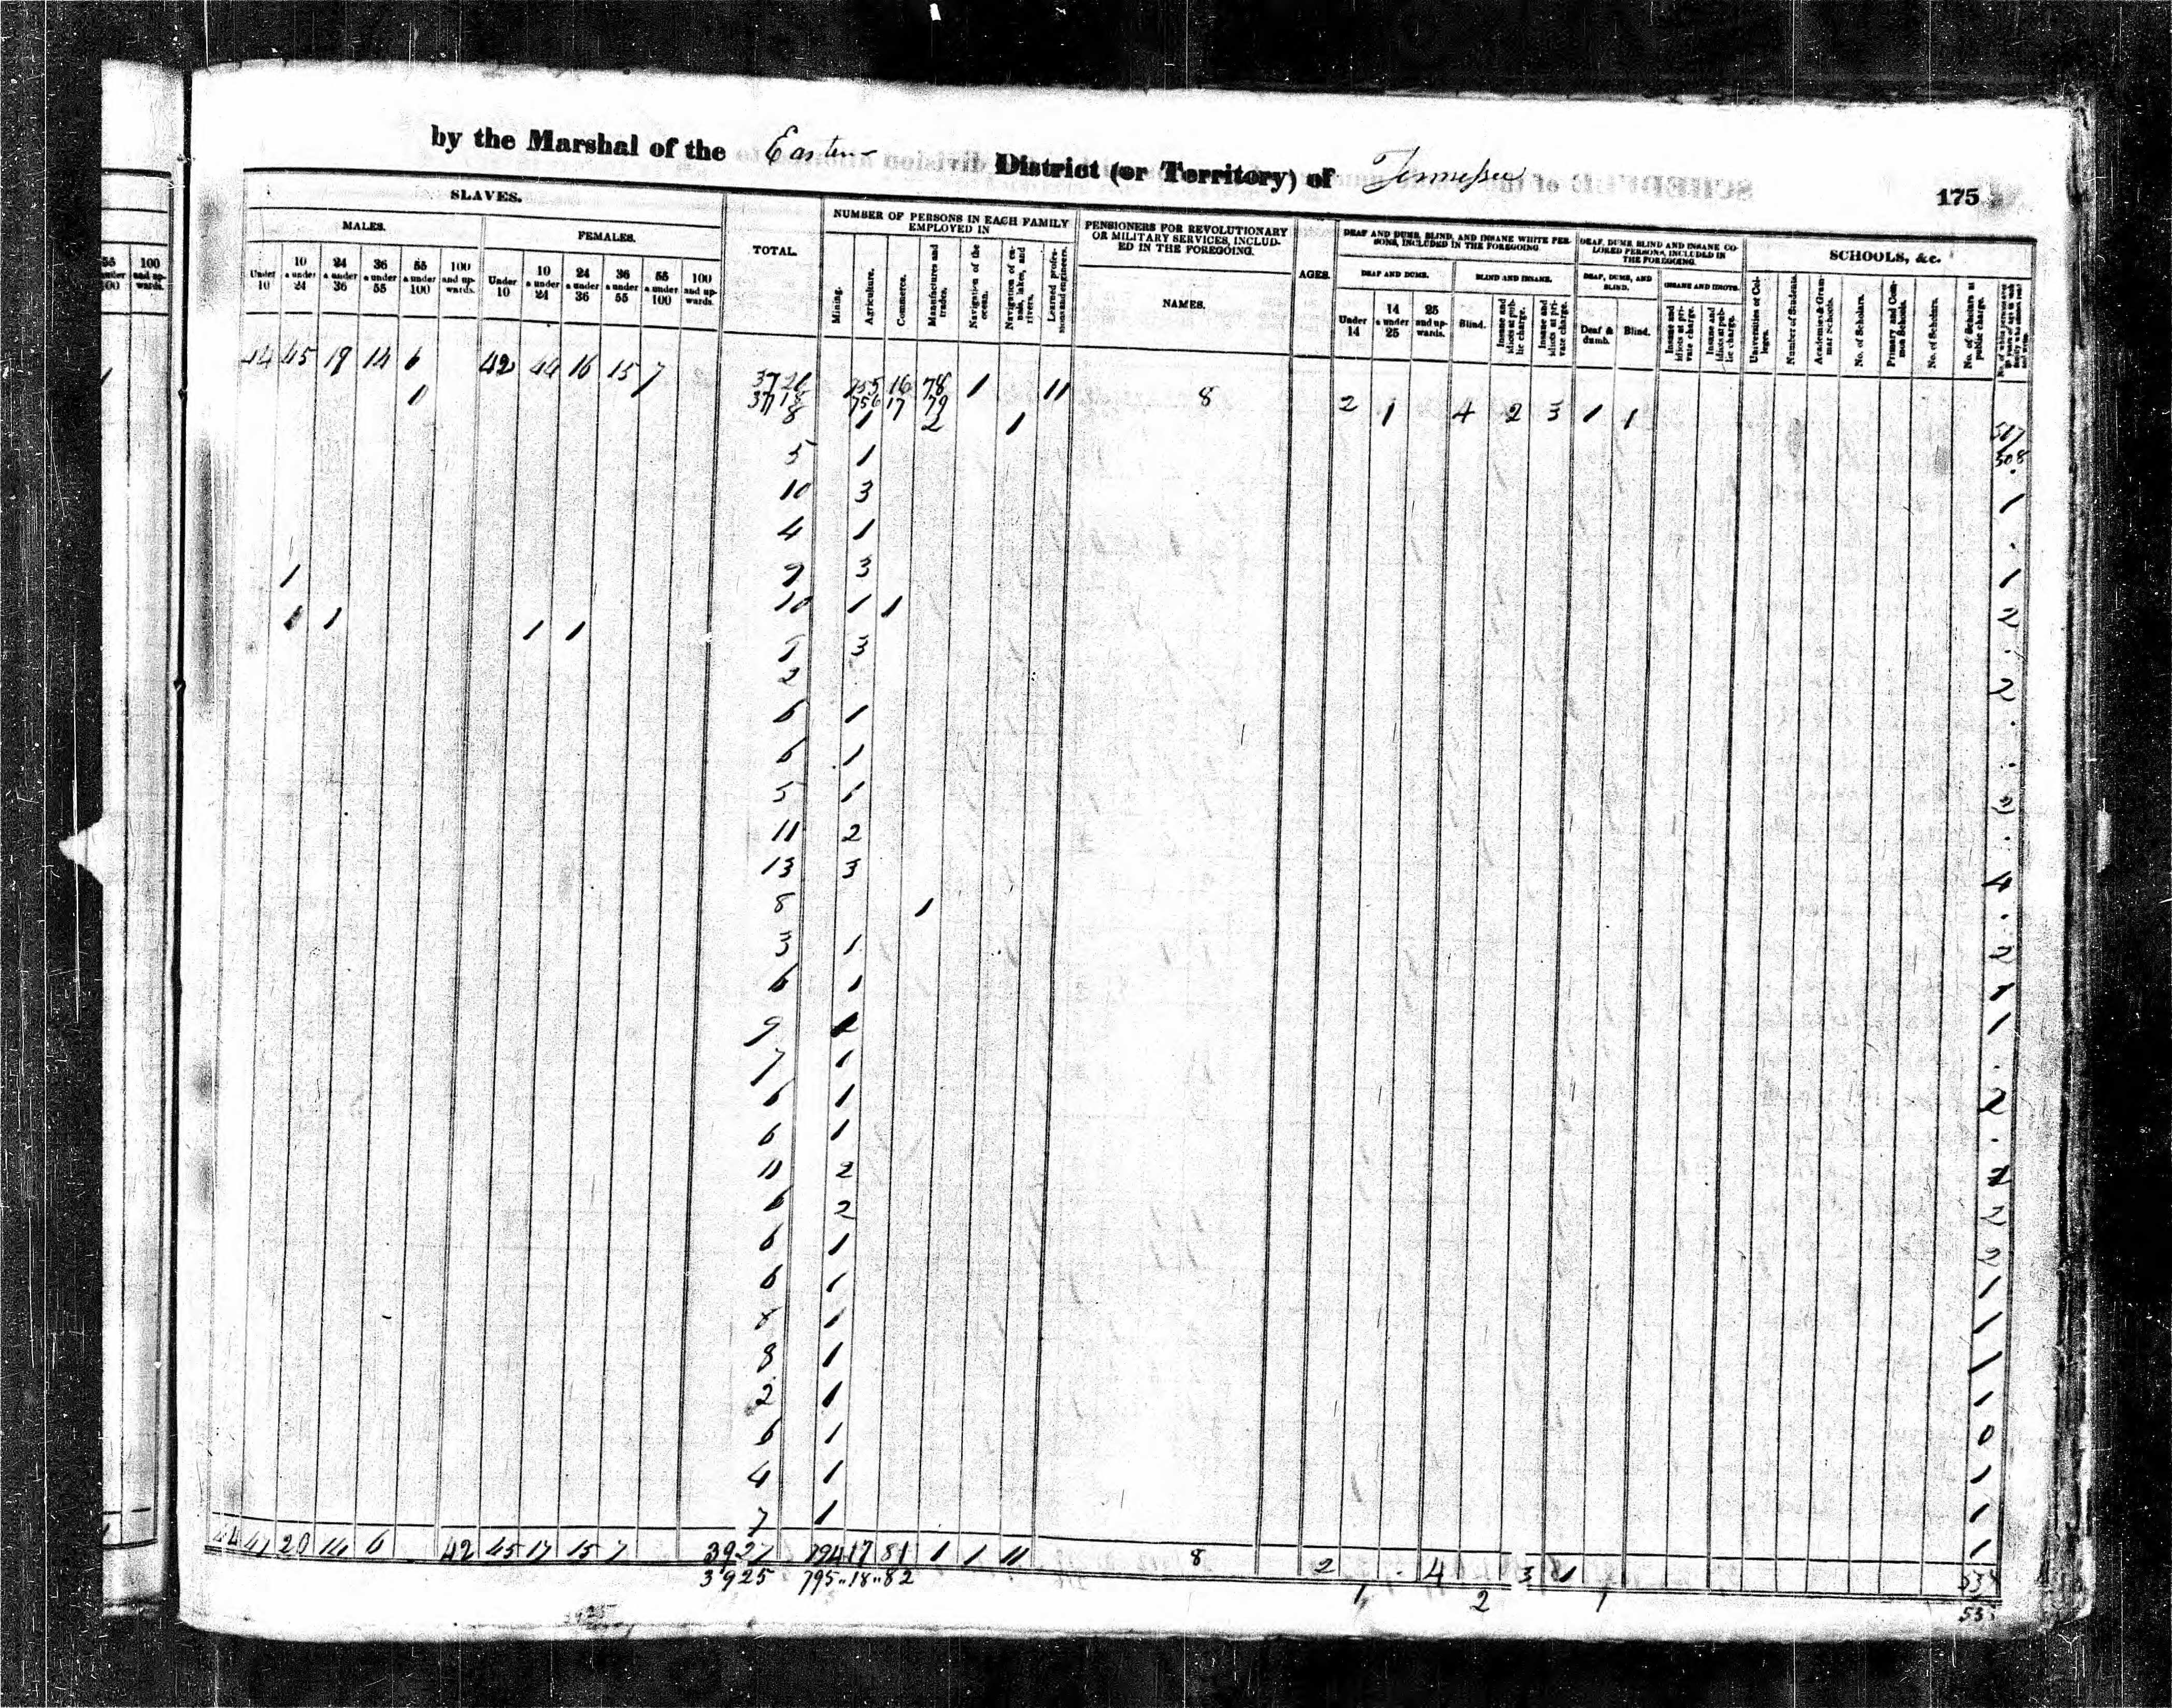 by the Marshal of the Eastern District (or Territory) of Tennessee
175
SLAVES.
MALES.
FEMALES.
TOTAL.
NUMBER OF PERSONS IN EACH FAMILY EMPLOYED IN
PENSIONERS FOR REVOLUTIONARY OR MILITARY SERVICES, INCLUDED IN THE FOREGOING.
NAMES.
AGES.
DEAF AND DUMB, BLIND, AND INSANE WHITE PERSONS, INCLUDED IN THE FOREGOING
DEAF AND DUMB.
BLIND AND INSANE.
DEAF, DUMB, BLIND AND INSANE COLORED PERSONS, INCLUDED IN THE FOREGOING.
DEAF, DUMB, AND BLIND.
INSANE AND IDIOTS.
SCHOOLS, &c.
55 a under 100
100 and upwards.
Under 10
10 a under 24
24 a under 36
36 a under 55
55 a under 100
100 and upwards.
Under 10
10 a under 24
24 a under 36
36 a under 55
55 a under 100
100 and upwards.
Mining.
Agriculture.
Commerce.
Manufactures and trades.
Navigation of the ocean.
Navigation of canals, lakes, and rivers.
Learned professions and engineers.
Under 14
14 a under 25
25 and upwards.
Blind.
Insane and idiots at public charge.
Insane and idiots at private charge.
Deaf & dumb.
Blind.
Insane and idiots at private charge.
Insane and idiots at public charge.
Universities or Colleges.
Number of Students.
Academies & Grammar Schools.
No. of Scholars.
Primary and Common Schools.
No. of Scholars.
No. of Scholars at public charge.
44 45 19 14 6 42 44 16 15 7
755 16 78 1 11 8 2 1 4 2 3 1 1
1 756 17 79
8 1 2 1
508
5 1
10 3 1
4 1
1 9 3 1
10 1 1 2
1 1 1 1
3
2 2
6 1
6 1
5 1
11 2
13 3 4
8 1
3 1 2
6 1 1
9 1
7 1
6 1 2
6 1
11 2
6 2 2
6 1 2
6 1 1
8 1 1
8 1 1
2 1 1
6 1 0
4 1 1
7 1 1
44 47 20 14 6 42 45 17 15 7 3927 794 17 81 1 1 11 8 2 4 3 1
3925 795 18 82 1 2 1